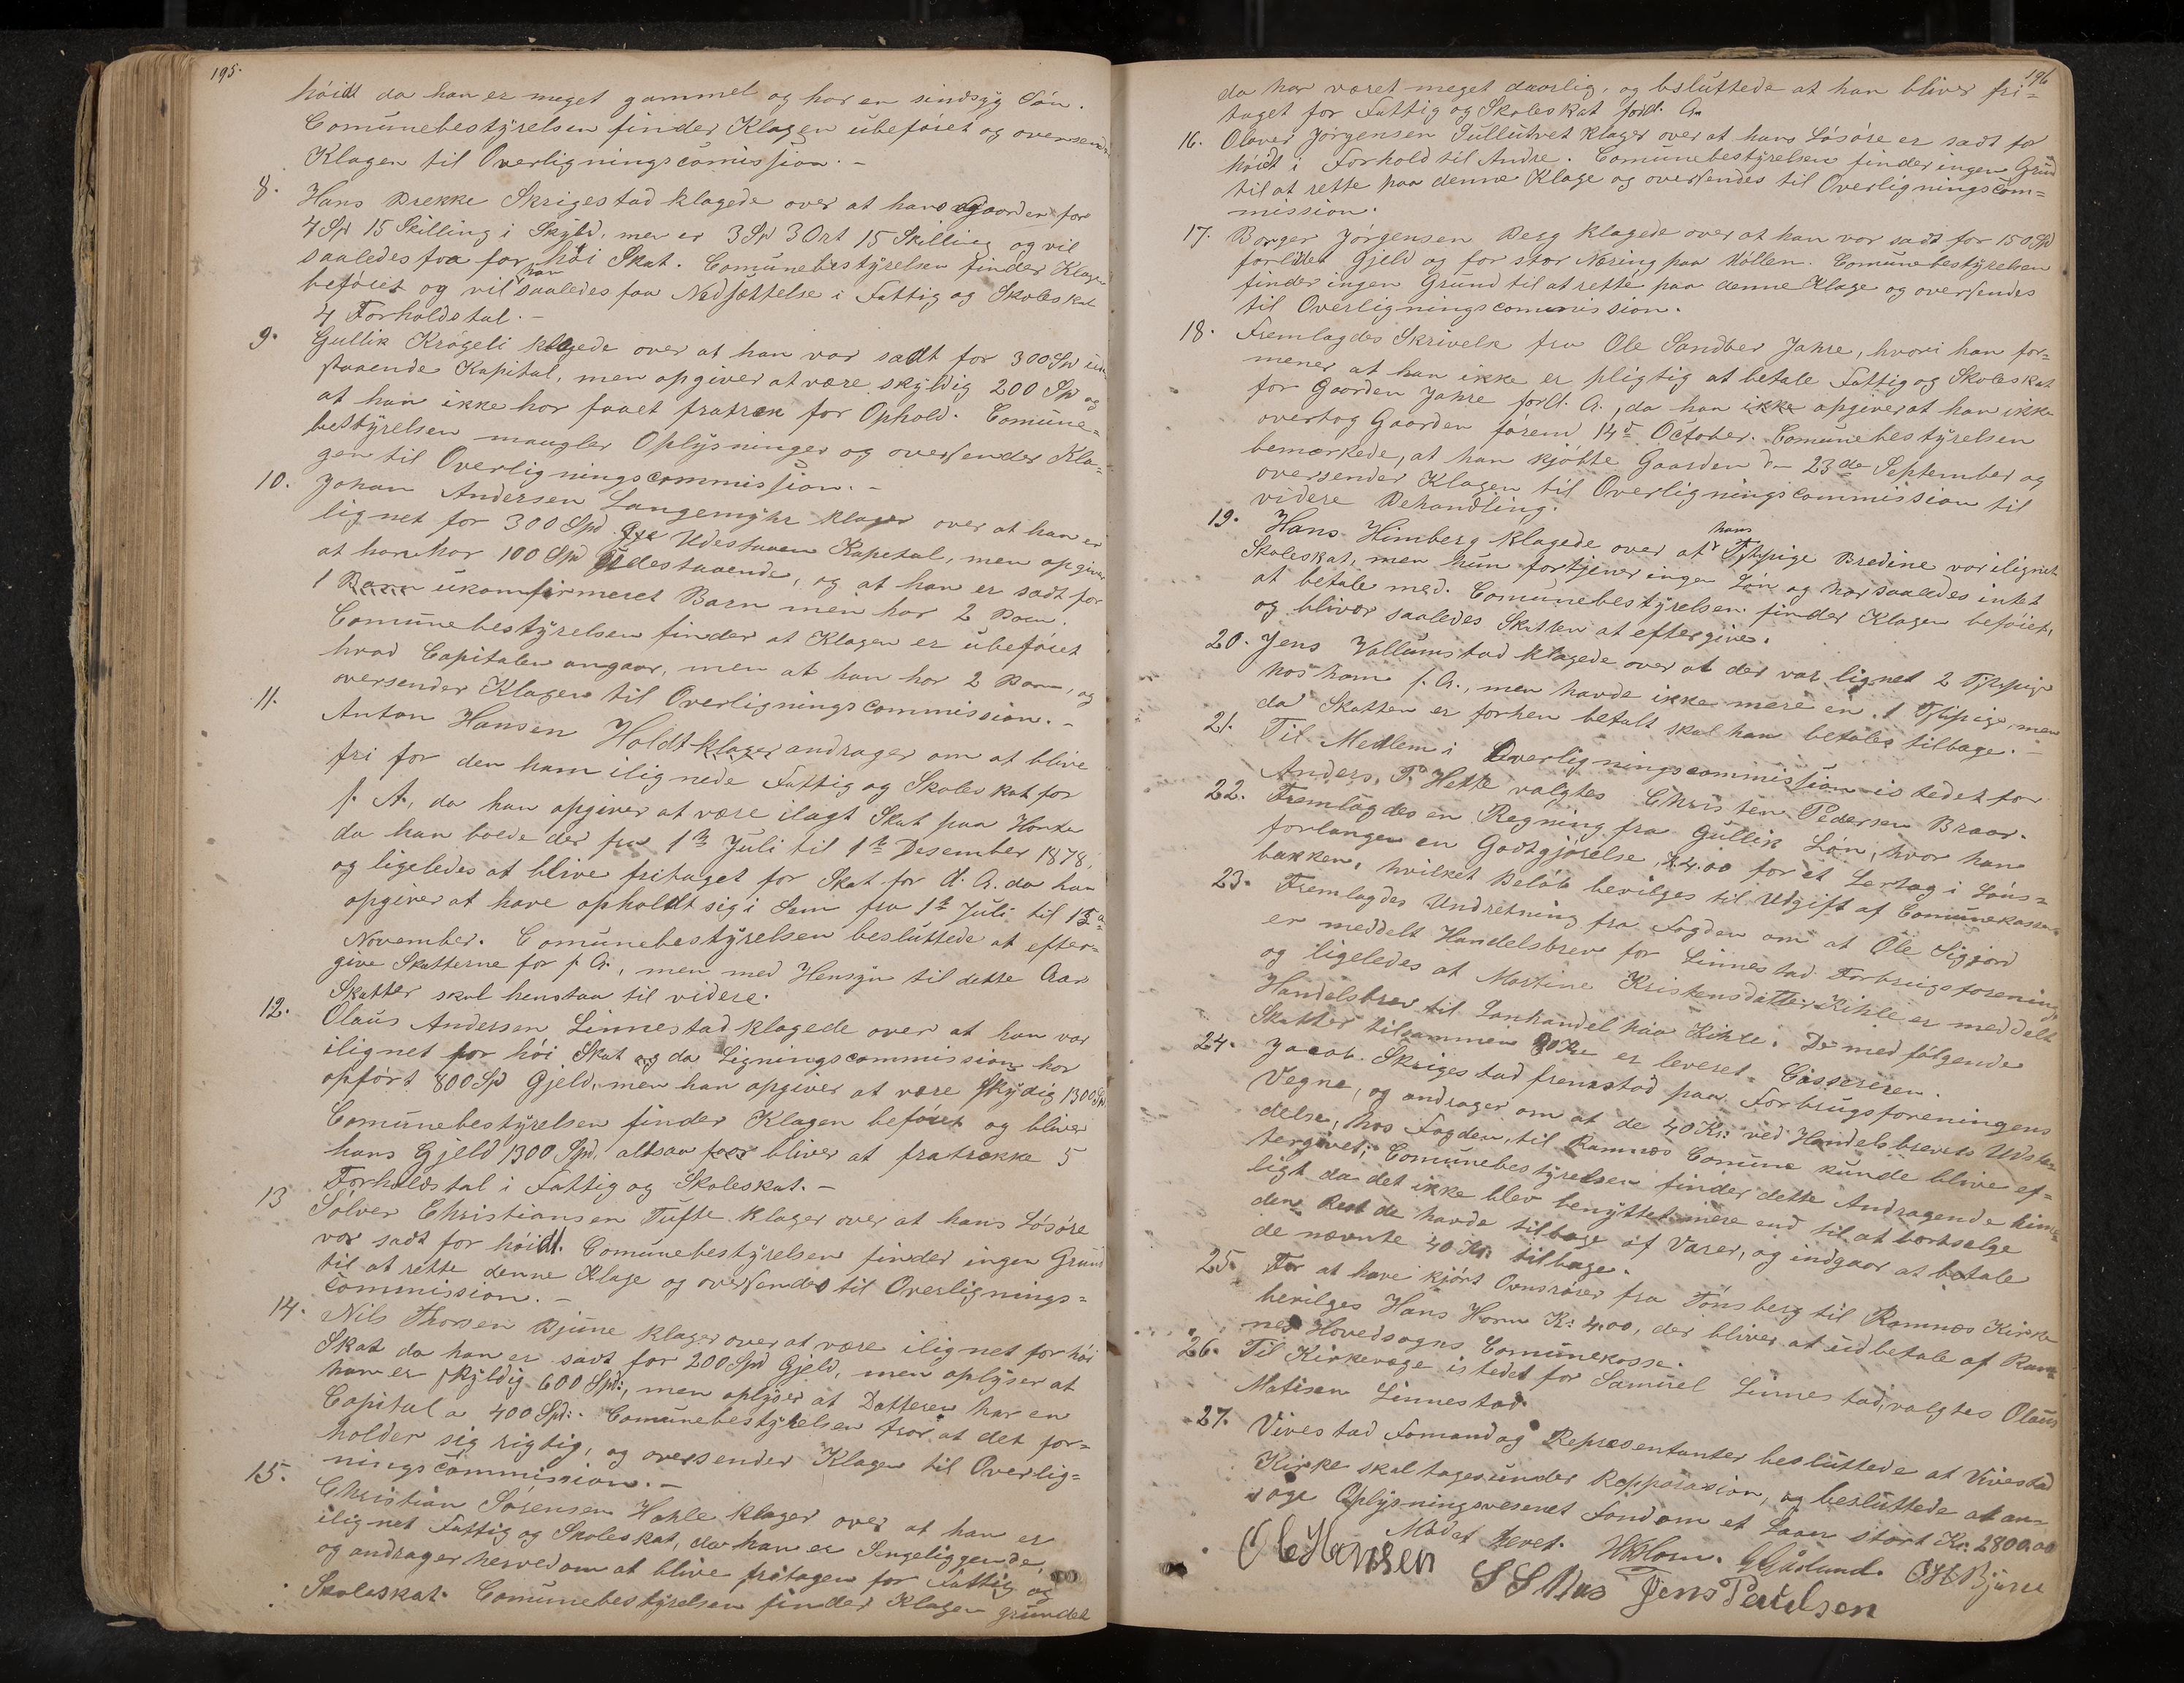 195.
höidt da han er meget gammel og har en sindsyg Søn.
Comunebestyrelsen finder Klagen ubeføiet og oversender
Klagen til Overligningscomission. -
8. Hans Brekke Skrigestad klagede over at hans Gaarden for
4 Spd 15 Skilling i Skyld, men er 3 Spd 3 Ort 15 Skilling og vil
saaledes faa for høi Skat. Comunebestyrelsen finder Klagen
beføiet og vil han saaledes faa Nedsættelse i Fattig og Skoleskat
4 Forholdstal. -
9. Gullik Krøgeli klagede over at han var sadt for 300 Spd ude
staaende Kapital, men opgiver at være skyldig 200 Spd og
at han ikke har faaet fratræk for Ophold. Comune=
bestyrelsen mangler Oplysninger og oversender Kla=
gen til Overligningscommission. -
10. Johan Andersen Langemyhr klager over at han er
lignet for 300 Spd Udestaaen Kapetal, men opgiver
at han har 100 Spd Udestaaende, og at han er sadt for
1 Barn ukomfirmeret Barn men har 2 Barn.
Comunebestyrelsen finder at Klagen er ubeføiet
hvad Capitalen angaar, men at han har 2 Barn, og
oversender Klagen til Overligningscommission. -
11. Anton Hansen Holdt klager andrager om at blive
fri for den ham ilignede Fattig og Skoleskat for
f. A., da han opgiver at være ilagt Skat paa Horten
da han boede der fra 1te Juli til 1te Desember 1878,
og ligeledes at blive fritaget for Skat for d. A. da han
opgiver at have opholdt sig i Sem fra 1te Juli til 15de
November. Comunebestyrelsen besluttede at efter=
give Skatterne for f A., men med Hensyn til dette Aars
Skatter skal henstaa til videre.
12. Olaus Andersen Linnestad klagede over at han var
ilignet for høi Skat og da Ligningscommission har
opført 800 Spd Gjeld, men han opgiver at være skydig 1300 Spd.
Comunebestyrelsen finder Klagen beføiet og bliver
hans Gjeld 1300 Spd. altsaa bliver at fratrække 5
Forholdstal i Fattig og Skoleskat. -
13 Sølver Christiansen Tufte klager over at hans Løsøre
var sadt for høidt. Comunebestyrelsen finder ingen Grund
til at rette denne Klage og oversendes til Overlignings=
commission. -
14. Nils Thorsen Bjune klager over at være ilignet for høi
Skat da han er sadt for 200 Spd Gjeld, men oplyser at
han er skyldig 600 Spd:, men oplyser at Datteren har en
Capital a 400 Spd:. Comunebestyrelsen tror at det for=
holder sig rigtig, og oversender Klagen til Overlig=
ningscommission. -
15. Christian Sørensen Hakle klager over at han er
ilignet Fattig og Skoleskat, da han er Sengeliggende,
og andrager herved om at blive fritagen for Fattig og
Skoleskat. Comunebestyrelsen finder Klagen grundet
196
da har været meget daarlig, og besluttede at han bliver fri=
taget for Fattig og Skoleskat for d. A.
16. Olaves Jørgensen Gullutvet klager over at hans Løsøre er sadt for
høidt i Forhold til Andre. Comunebestyrelsen finder ingen Grund
til at rette paa denne Klage og oversendes til Overligningscom=
mission.
17. Borger Jørgensen Berg klagede over at han var sadt for 150 Spd
for liden Gjeld og for stor Næring paa Møllen. Comunebestyrelsen
finder ingen Grund til at rette paa denne Klage og oversendes
til Overligningscommission.
18 Fremlagdes Skrivelse fra Ole Sandber Jahre, hvori han for=
mener at han ikke er pligtig at betale Fattig og Skoleskat
for Gaarden Jahre for d. A., da han ikke opgiver at han ikke
overtog Gaarden førend 14de October. Comunebestyrelsen
bemærkede, at han kjøbte Gaarden den 23de September og
oversender Klagen til Overligningscommission til
videre Behandling.
19. Hans Himberg klagede over at hans Tjpige Bredine var ilignet
Skoleskat, men hun fortjener ingen Løn og har saaledes intet
at betale med. Comunebestyrelsen finder Klagen beføiet,
og bliver saaledes Skatten at eftergives.
20. Jens Vallumstad klagede over at der var lignet 2 Tjpige
hos ham f. A., men havde ikke mere en 1 Tjpige, men
da Skatten er forhen betalt skal han betales tilbage. -
21. Til Medlem i Overligningscommission istedet for
Anders P. Hette valgtes Christen Pedersen Braar.
22. Fremlagdes en Regning fra Gullik Løn, hvor han
forlanger en Godtgjørelse, K 4.00 for et Lertag i Løns=
bakken, hvilket Beløb bevilges til Udgift af Comunekassen
23. Fremlagdes Undretning fra Fogden om at Ole Sigjord
er meddelt Handelsbrev for Linnestad Forbrugsforening
og ligeledes at Martine Kristensdatter Kihle er meddelt
Handelsbrev til Lanhandel paa Kihle. De med følgende
Skatter tilsammen 80 Kr er leveret Cassereren.
24. Jacob Skrigestad fremstod paa Forbrugsforeningens
Vegne, og andrager om at de 40 Kr: ved Handelsbrevets Udste
delse, hos Fogden, til Ramnæs Comune kunde blive ef=
tergivet; Comunebestyrelsen finder dette Andragende bime=
ligt da det ikke blev benyttet mere end til at bortselge
den Rest de havde tilbage af Varer, og indgaar at betale
de nævnte 40 Kr: tilbage.
25. For at have kjørt Ovnsrører fra Tønsberg til Ramnæs Kirke
bevilges Hans Horn K: 4.00, der bliver at udbetale af Ram
næs Hovedsogns Comunekasse.
26. Til Kirkeværge istedet for Samuel Linnestad, valgtes Olaus
Matisen Linnestad.
27. Vivestad Formandog Representanter besluttede at Vivestad
Kirke skal tages under Repporasion, og besluttede at an=
søge Oplysningsvesenet Fond om et Laan stort Kr: 2800.00
Mødet hevet. HHHorn. GGuslund. OHBjune
Ole Hansen
S S Aas Jens Paulsen